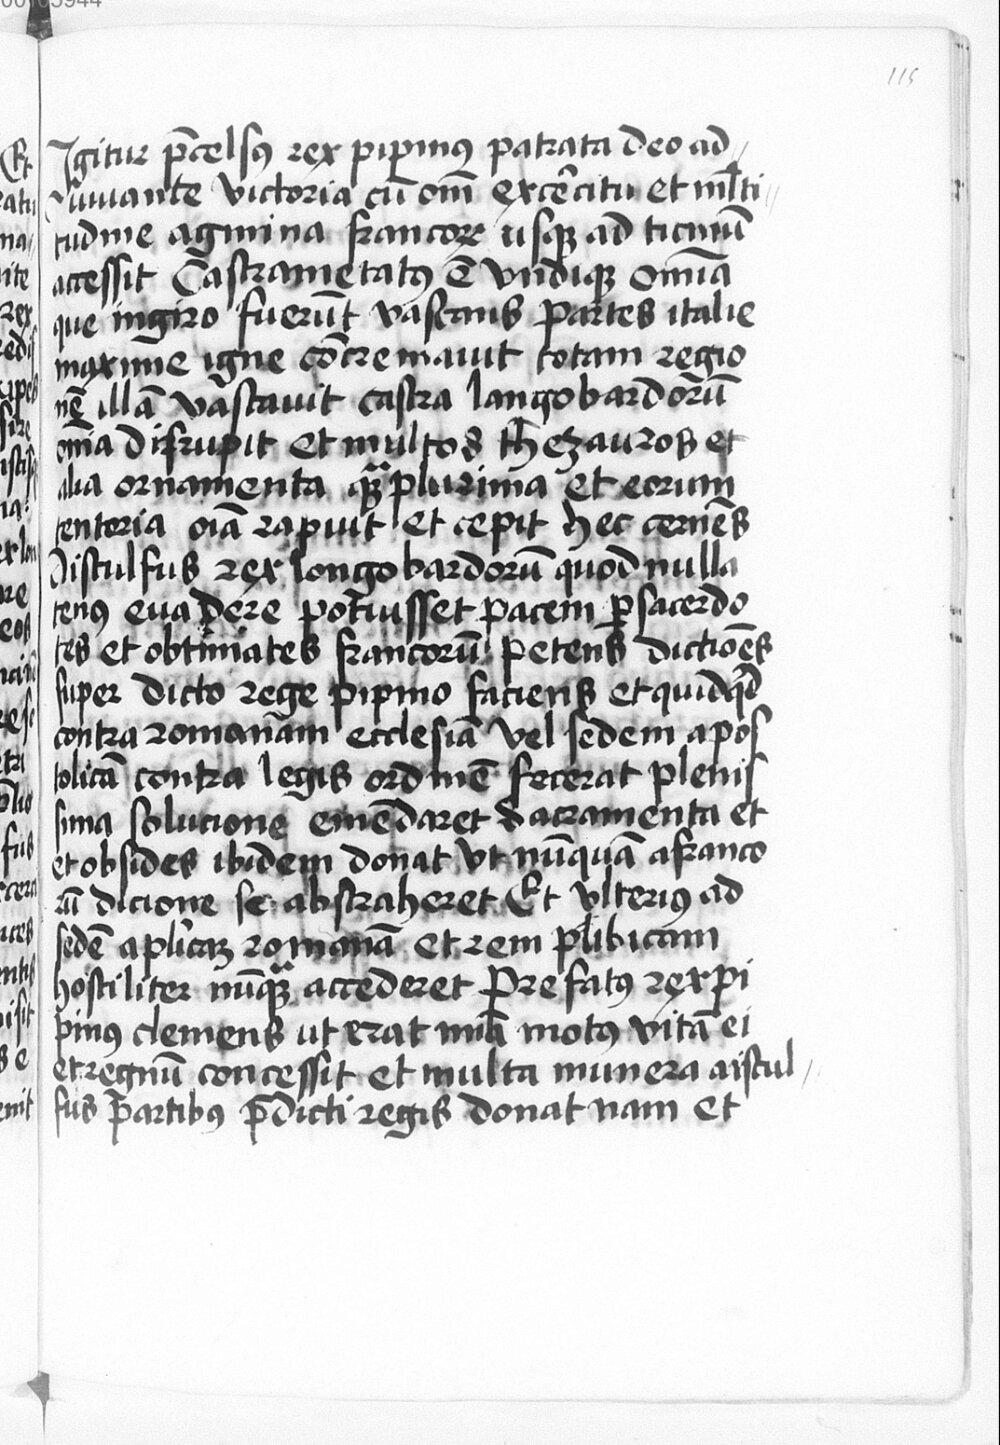 00103944
115
Igitur p̄celsꝯ rex pipinꝯ patrata deo ad//
iuuante victoria cū om̄i excercitu et ml̄ti//
tudine agmina francoꝝ usqꝫ ad ticinū
accessit Castrametatꝯ ē vndiqꝫ omīa
que ingiro fuerūt vastans partes italie
maxime igne cōcremauit totam regio
nē illā vastauit castra langobardorū
om̄ia disrupit et multos thezauros et
alia ornamenta qᷓꝫ plurima et eorum
tentoria oīa rapuit et cepit hec cernēs
Aistulfus rex longobardorū quod nulla
tenꝯ euadere potuisset pacem ꝑ sacerdo
tes et obtimates francorū petens dictiōes
super dicto rege pipino faciens et quidqᷓd
contra romanam ecclesiā vel sedem apos
tolicā contra legis ordinē fecerat plenis
sima solucione emēdaret sacramenta et
et obsides ibidem donat vt nūquā a franco
rū dicione se abstraheret Et vlteriꝯ ad
sedē aplicaꝫ romanā et rem plibicam
hostiliter nūqᷓꝫ accederet Prefatꝯ rex pi
pinꝯ clemens ut erat mīa motꝯ vitā ei
et regnū concessit et multa munera aistul//
fus partibꝯ p̄dicti regis donat nam et